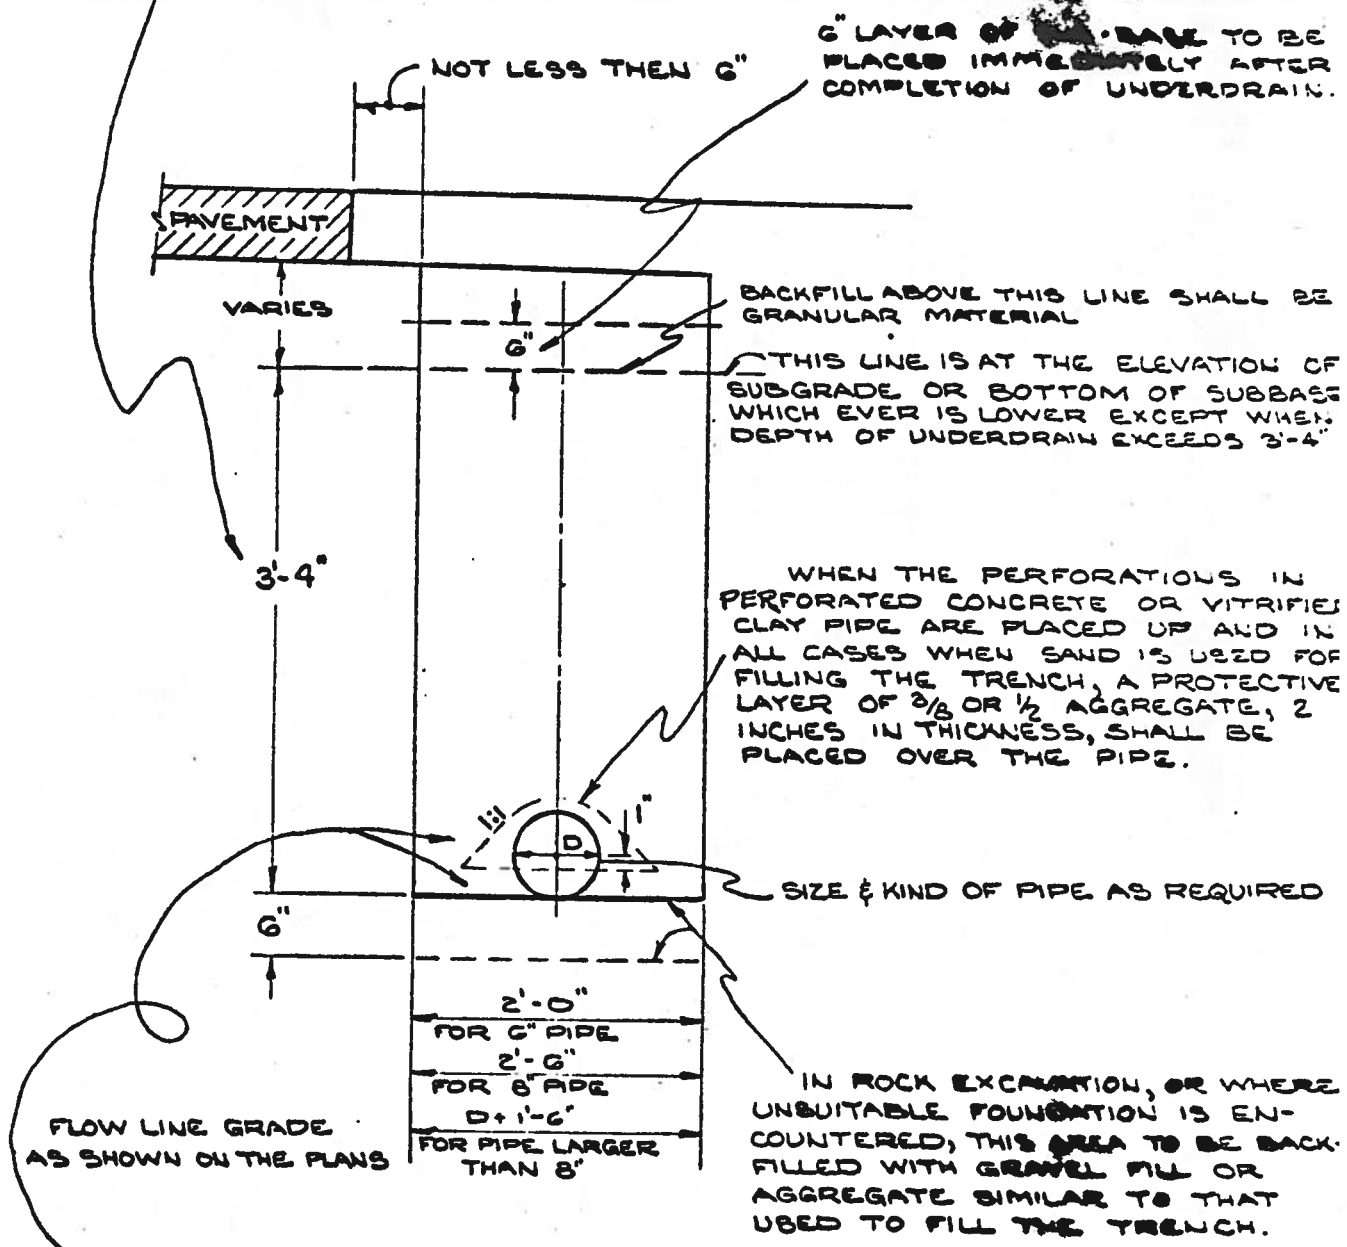 6" LAYER OF BASE TO BE
PLACED IMMEDIATELY AFTER
COMPLETION OF UNDERDRAIN.
NOT LESS THEN 6"
PAVEMENT
VARIES
6"
BACKFILL ABOVE THIS LINE SHALL BE
GRANULAR MATERIAL
THIS LINE IS AT THE ELEVATION OF
SUBGRADE OR BOTTOM OF SUBBASE
WHICH EVER IS LOWER EXCEPT WHEN
DEPTH OF UNDERDRAIN EXCEEDS 3'-4"
3'-4"
WHEN THE PERFORATIONS IN
PERFORATED CONCRETE OR VITRIFIED
CLAY PIPE ARE PLACED UP AND IN
ALL CASES WHEN SAND IS USED FOR
FILLING THE TRENCH, A PROTECTIVE
LAYER OF 3/8 OR 1/2 AGGREGATE, 2
INCHES IN THICKNESS, SHALL BE
PLACED OVER THE PIPE.
1:1
1"
D
SIZE & KIND OF PIPE AS REQUIRED
6"
2'-0"
FOR 6" PIPE
2'-6"
FOR 8" PIPE
D+1'-6"
FOR PIPE LARGER
THAN 8"
FLOW LINE GRADE
AS SHOWN ON THE PLANS
IN ROCK EXCAVATION, OR WHERE
UNSUITABLE FOUNDATION IS EN-
COUNTERED, THIS AREA TO BE BACK-
FILLED WITH GRAVEL FILL OR
AGGREGATE SIMILAR TO THAT
USED TO FILL THE TRENCH.